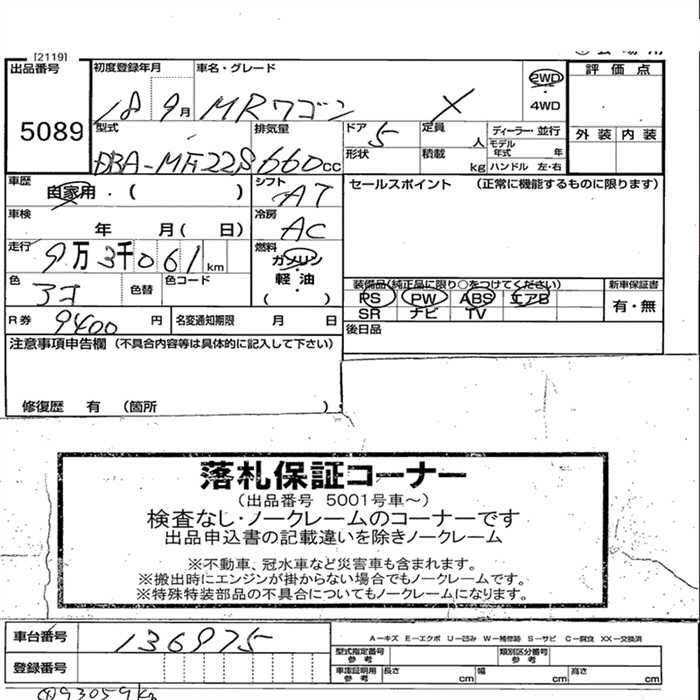 [2119]
出品番号 初度登録年月 車名・グレード 2WD 評価点
5089 18 9月 MRワゴン X 4WD
型式 排気量 ドア 5 定員 人 ディーラー・並行 外装 内装
DBA-MF22S 660cc 形状 積載 kg モデル年式 年 ハンドル 左・右
車歴 自家用・( ) シフト AT セールスポイント (正常に機能するものに限ります)
車検 年 月( 日) 冷房 AC
走行 9万3千061km 燃料 ガソリン・軽油 ( )
色 色替 色コード 装備品(純正品に限り○をつけてください) 新車保証書
PS PW ABS エアB 有・無
SR ナビ TV
R券 9400円 名変通知期限 月 日 後日品
注意事項申告欄 (不具合内容等は具体的に記入して下さい)
修復歴 有 (箇所 )
落札保証コーナー
(出品番号 5001号車～)
検査なし・ノークレームのコーナーです
出品申込書の記載違いを除きノークレーム
※不動車、冠水車など災害車も含まれます。
※搬出時にエンジンが掛からない場合でもノークレームです。
※特殊特装部品の不具合についてもノークレームになります。
車台番号 136975 A-キズ E-エクボ U-凹み W-補修跡 S-サビ C-腐食 XX-交換済
型式指定番号 参考 類別区分番号 参考
登録番号 車庫証明用 参考 長さ cm 幅 cm 高さ cm
93059km